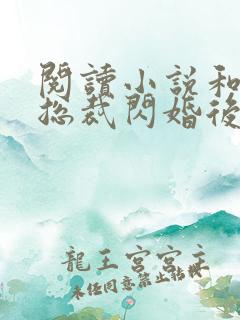 閱讀小說和
總裁閃婚後
龍王宮宮主
未經同意禁止轉載